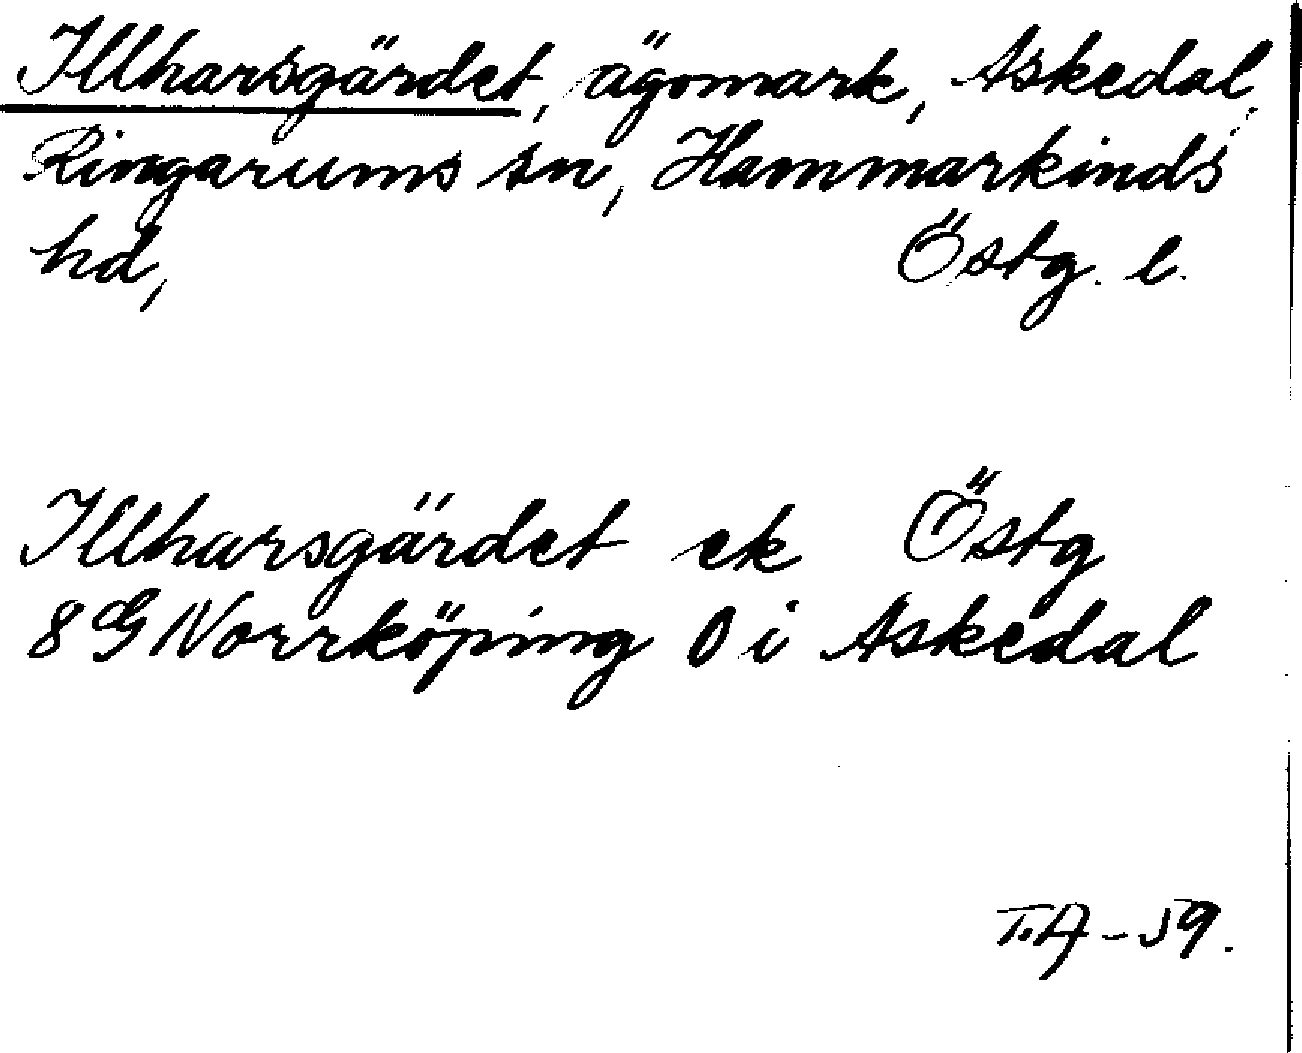 Illharsgärdet, ägomark, Askedal,
Ringarums sn, Hammarkinds
hd, Östg. l.
Illharsgärdet ek Östg
8G Norrköping O i Askedal
T.A - 59.